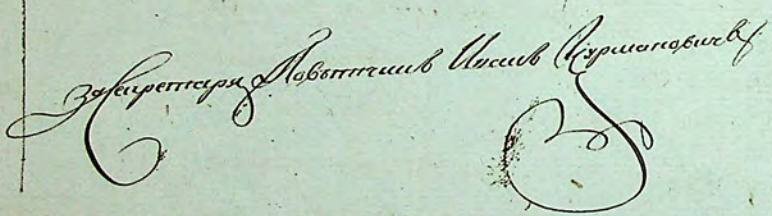 За Секретаря Повытчикъ Иасивъ Цурмановичъ